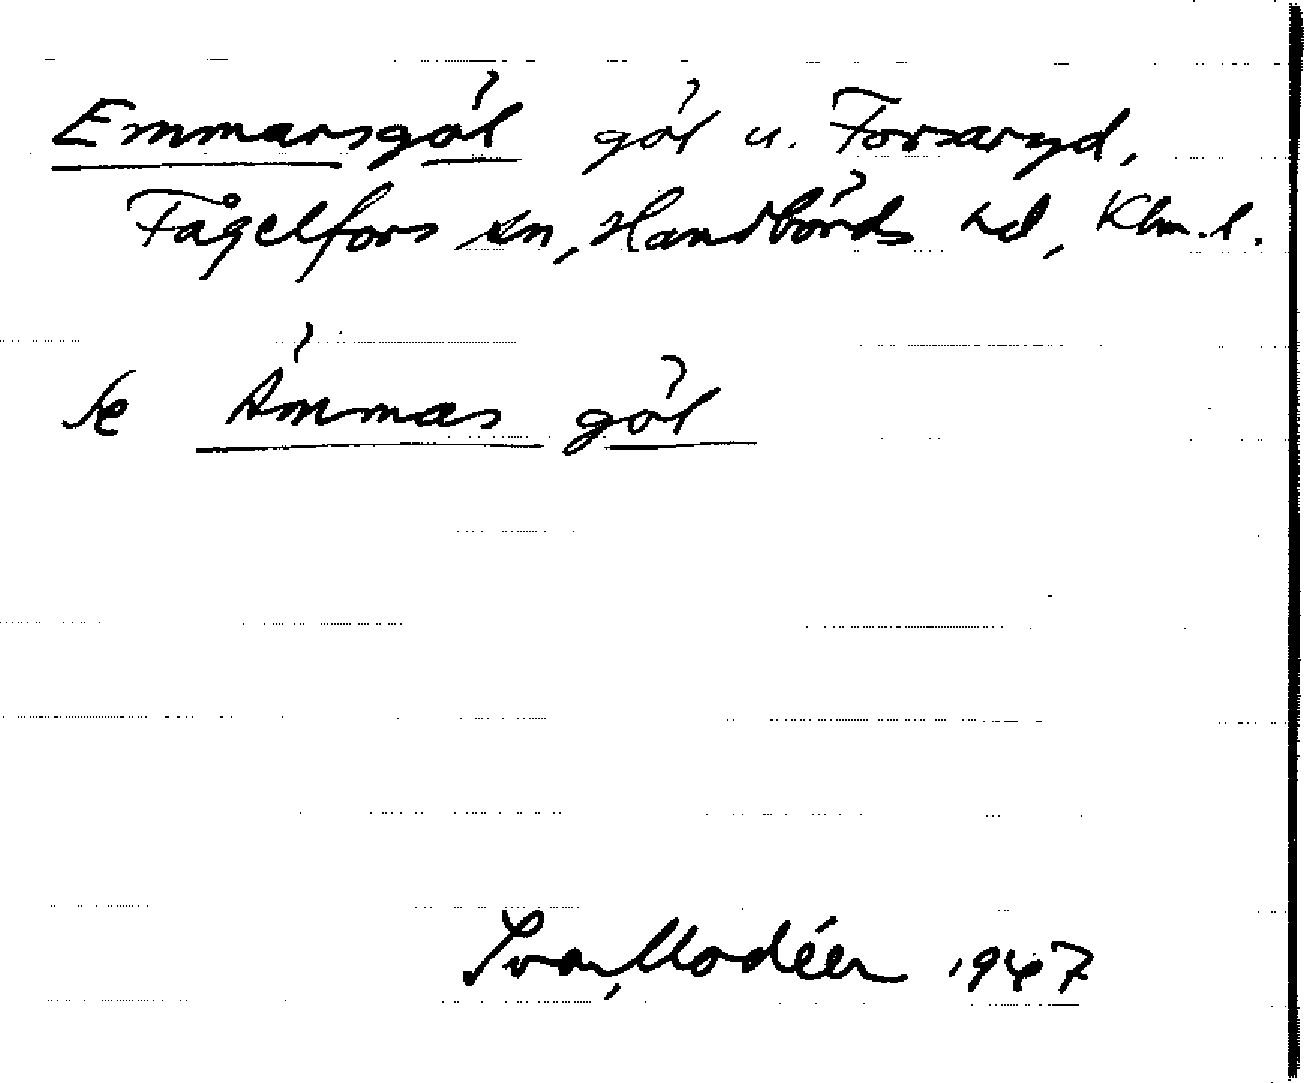 Emmarsgöl göl u. Forsaryd,
Fågelfors sn, Handbörds hd, Klm. l.
Se Ämmas göl
Ivar Modéer 1947